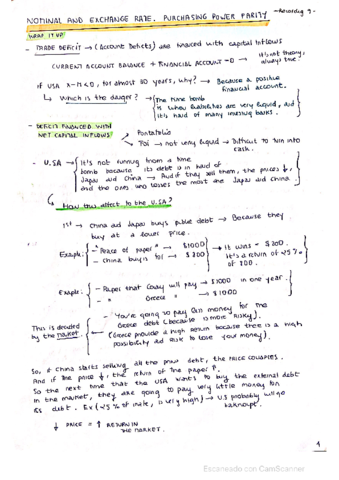 NOMINAL AND EXCHANGE RATE. PURCHASING POWER PARITY
WRAP IT UP
- TRADE DEFICIT → (Account Deficits) are financed with capital inflows
CURRENT ACCOUNT BALANCE + FINANCIAL ACCOUNT = 0 → It's not theory, always true!
If USA X-M<0, for almost 40 years, why? → Because a positive financial account.
↳ Which is the danger? → The time bomb
is when liabilities are very liquid, and
it's hand of many investing banks.
- DEFICIT FINANCED WITH
NET CAPITAL INFLOWS
Portafolio
FDI → not very liquid → Difficult to turn into
cash.
- U.S.A → It's not running from a time
bomb because its debt is in hand of
Japan and China → And if they sell them, the prices ↓,
and the ones who losses the most are Japan and China
How this affect to the U.S.A?
1st → China and Japan buys public debt → Because they
buy at a lower price.
Example: - "Peace of paper" → $1000
- China buys for → $800
→ It wons = $200.
It's a return of 25%
Example: - Paper that Coaly will pay → $1000 in one year.
- " " Greece " → $1000
This is decided
by the market.
- You're going to pay less money for the
Greece debt (because is more risky).
(Greece provide a high return because there is a high
possibility and risk to lose your money).
So, if China starts selling all the debt, the price collapses.
And if the price ↓, the return of the paper ↑.
So the next time that the USA wants to buy the external debt
in the market, they are going to pay very little money for
its debt. Ex (25% of rate, is very high) → U.S probably will go
bankrupt.
↓ PRICE = ↑ RETURN IN
THE MARKET.
1
Escaneado con CamScanner